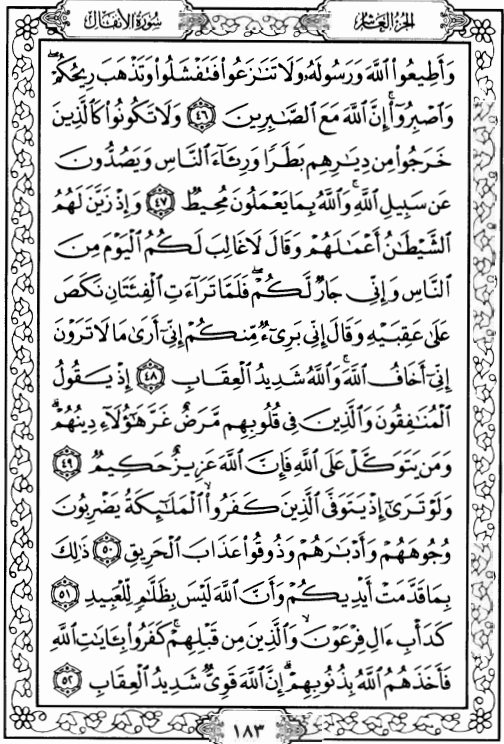 سُورَةُ الأَنفَالِ
الجُزْءُ العَاشِرُ
وَأَطِيعُوا۟ ٱللَّهَ وَرَسُولَهُۥ وَلَا تَنَٰزَعُوا۟ فَتَفْشَلُوا۟ وَتَذْهَبَ رِيحُكُمْ ۖ
وَٱصْبِرُوٓا۟ ۚ إِنَّ ٱللَّهَ مَعَ ٱلصَّٰبِرِينَ ٤٦ وَلَا تَكُونُوا۟ كَٱلَّذِينَ
خَرَجُوا۟ مِن دِيَٰرِهِم بَطَرًا وَرِئَآءَ ٱلنَّاسِ وَيَصُدُّونَ
عَن سَبِيلِ ٱللَّهِ ۚ وَٱللَّهُ بِمَا يَعْمَلُونَ مُحِيطٌ ٤٧ وَإِذْ زَيَّنَ لَهُمُ
ٱلشَّيْطَٰنُ أَعْمَٰلَهُمْ وَقَالَ لَا غَالِبَ لَكُمُ ٱلْيَوْمَ مِنَ
ٱلنَّاسِ وَإِنِّى جَارٌ لَّكُمْ ۖ فَلَمَّا تَرَآءَتِ ٱلْفِئَتَانِ نَكَصَ
عَلَىٰ عَقِبَيْهِ وَقَالَ إِنِّى بَرِىٓءٌ مِّنكُمْ إِنِّىٓ أَرَىٰ مَا لَا تَرَوْنَ
إِنِّىٓ أَخَافُ ٱللَّهَ ۚ وَٱللَّهُ شَدِيدُ ٱلْعِقَابِ ٤٨ إِذْ يَقُولُ
ٱلْمُنَٰفِقُونَ وَٱلَّذِينَ فِى قُلُوبِهِم مَّرَضٌ غَرَّ هَٰٓؤُلَآءِ دِينُهُمْ ۗ
وَمَن يَتَوَكَّلْ عَلَى ٱللَّهِ فَإِنَّ ٱللَّهَ عَزِيزٌ حَكِيمٌ ٤٩
وَلَوْ تَرَىٰٓ إِذْ يَتَوَفَّى ٱلَّذِينَ كَفَرُوا۟ ۙ ٱلْمَلَٰٓئِكَةُ يَضْرِبُونَ
وُجُوهَهُمْ وَأَدْبَٰرَهُمْ وَذُوقُوا۟ عَذَابَ ٱلْحَرِيقِ ٥٠ ذَٰلِكَ
بِمَا قَدَّمَتْ أَيْدِيكُمْ وَأَنَّ ٱللَّهَ لَيْسَ بِظَلَّٰمٍ لِّلْعَبِيدِ ٥١
كَدَأْبِ ءَالِ فِرْعَوْنَ ۙ وَٱلَّذِينَ مِن قَبْلِهِمْ ۚ كَفَرُوا۟ بِـَٔايَٰتِ ٱللَّهِ
فَأَخَذَهُمُ ٱللَّهُ بِذُنُوبِهِمْ ۗ إِنَّ ٱللَّهَ قَوِىٌّ شَدِيدُ ٱلْعِقَابِ ٥٢
١٨٣